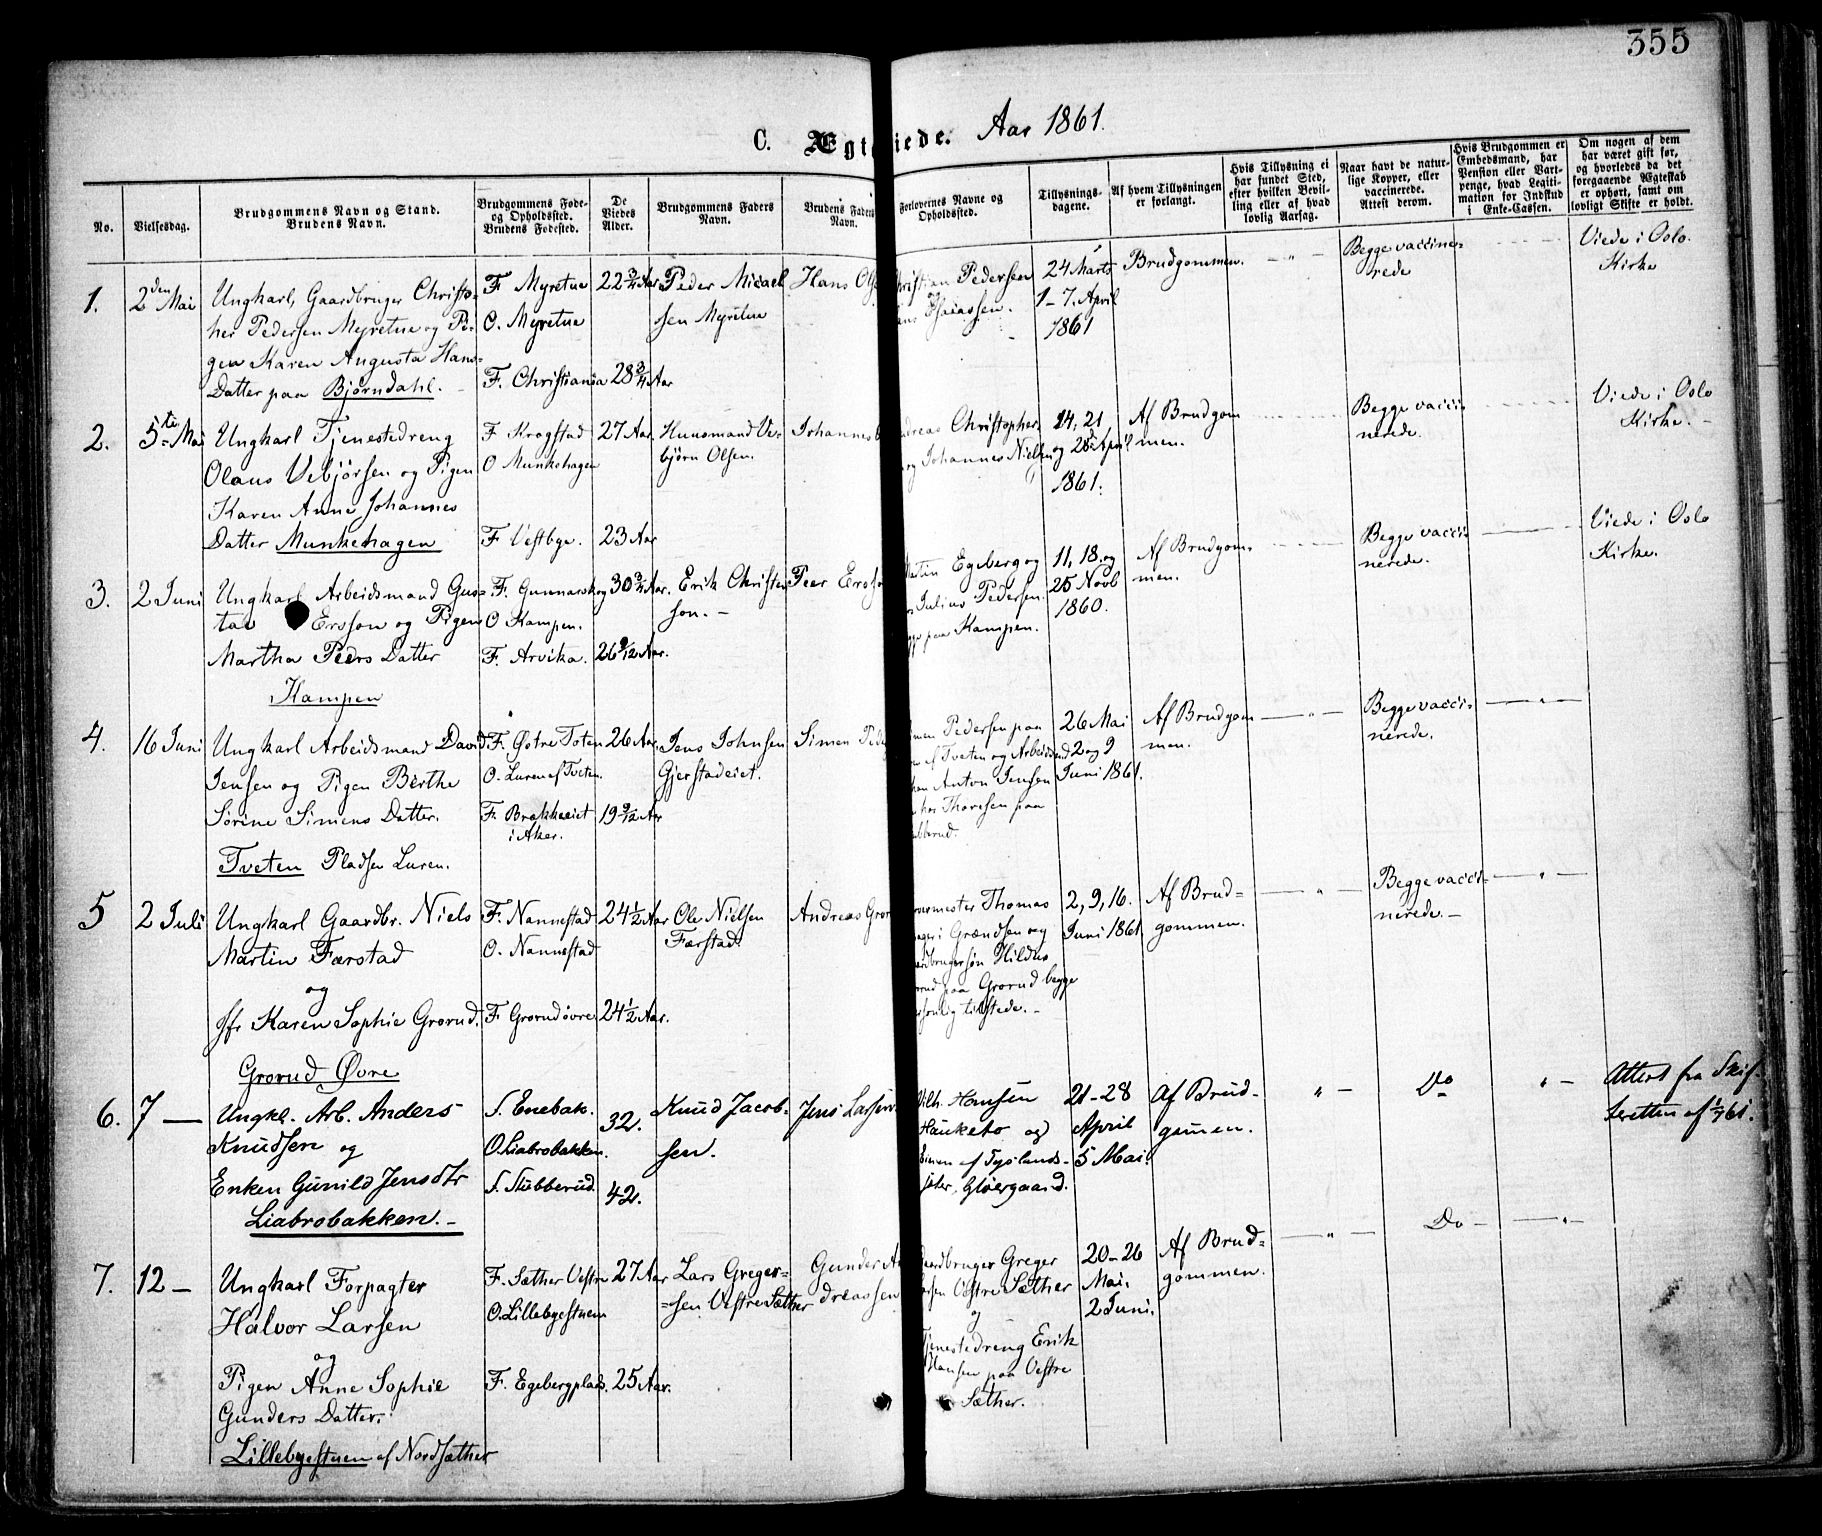 355
C. Ægteviede. Aar 1861.
No.
Vielsesdag.
Brudgommens Navn og Stand.
Brudens Navn.
Brudgommens Føde-
og Opholdssted.
Brudens Fødested.
De
Viedes
Alder.
Brudgommens Faders
Navn.
Brudens Faders
Navn.
Forlovernes Navne og
Opholdssted.
Tillysnings-
dagene.
Af hvem Tillysningen
er forlangt.
Hvis Tillysning ei
har fundet Sted,
efter hvilken Bevil-
ling eller af hvad
lovlig Aarsag.
Naar havt de natur-
lige Kopper, eller
vaccinerede.
Attest derom.
Hvis Brudgommen er
Embedsmand, har
Pension eller Vart-
penge, hvad Legiti-
mation for Indskud
i Enke-Cassen.
Om nogen af dem
har været gift før,
og hvorledes da det
foregaaende Ægteskab
er ophørt, samt om
lovligt Skifte er holdt.
1.
2den Mai
Ungkarl, Gaardbruger Christo-
her Pedersen Myretue og Pi-
gen Karen Augusta Hans-
Datter paa Bjørndahl. -
F. Myretue
O. Myretue
F. Christiania
22 3/4 Aar
28 3/4 Aar
Peder Micael
sen Myretue
Hans Ols
Christian Pedersen
Esaiassen.
24 Marts
1-7. April
1861
Brudgommen.
- " -
Begge vaccine-
rede
Viede i Oslo.
Kirke
2.
5te Mai
Ungkarl Tjenestedreng
Olaus Vebjørsen og Pigen
Karen Anne Johannes
Datter Munkehagen
F. Krogstad
O Munkehagen
F. Vestbye.
27 Aar.
23 Aar
Huusmand Ve-
bjørn Olsen.
Johannes
Andreas Christopher
og Johannes Nielsen
14, 21
og 28de April
1861.
Af Brudgom
men.
Begge vacci-
nerede.
Viede i Oslo
Kirke. -
3.
2 Juni
Ungkarl Arbeidsmand Gus-
tav Ersson og Pigen
Martha Peers Datter
Kampen
F. Gunnarskog
O Kampen.
F. Arvika.
30 3/4 Aar.
26 9/12 Aar.
Erik Christen
son. -
Peer Ersso
Martin Egeberg og
Julius Pedersen
begge paa Kampen.
11, 18. og
25 Novb
1860.
Af Brudgom-
men.
Begge vacci-
nerede.
Viede i Oslo
Kirke.
4.
16 Juni
Ungkarl Arbeidsmand David
Jensen og Pigen Bèrthe
Sørine Simens Datter.
Tveten Pladsen Luren.
F. Østre Toten
O. Luren af Tveten.
F. Brækkeeiet
i Aker.
26 Aar.
19 9/12 Aar
Jens Johnsen
Gjerstadeiet.
Simen Peder
Simen Pedersen paa
af Tveten og Arbeidsmd
Johan Anton Jensen
hos Thoresen paa
26 Mai
2 og 9
Juni 1861.
Af Brudgom
men.
- " -
Begge vacci-
nerede.
- " -
5
2 Juli
Ungkarl Gaardbr. Niels
Martin Færstad
og
Jfr Karen Sophie Grorud.
Grorud Øvre
F. Nannestad
O. Nannestad
F. Grorud øvre
24 1/2 Aar
24 1/2 Aar.
Ole Nielsen
Færstad.
Andreas Gror
Garvermester Thomas
i Grændsen og
Gaardbrugersøn Hildus
Grorud paa Grorud begge
personlig tilstede. -
2, 9, 16.
Juni 1861
Af Brud-
gommen.
- " -
Begge vacci-
nerede. -
- " -
6.
7 -
Ungkl. Arb. Anders
Knudsen og
Enken Gunild Jensdtr
Liabrobakken. -
F. Enebak.
O. Liabrobakken.
F. Stubberud.
32.
42.
Knud Jacob-
sen.
Jens Larsen
Vilh. Hansen
Hauketo og
Simen af Tyslands-
Gløergaard.
21-28
April
5 Mai.
Af Brud-
gommen.
" -
Do
" -
Attest fra Skif-
teretten af 1/7 61.
7.
12 -
Ungkarl Forpagter
Halvor Larsen
og
Pigen Anne Sophie
Gunders Datter.
Lillebyestuen af Nordsæther
F. Sæther Vestre
O. Lillebyestuen
F. Egebergplads.
27 Aar
25 Aar.
Lars Greger-
-sen Vestre Sæther
Gunder An
dreassen
Gaardbruger Greger
Larsen Vestre Sæther
og
Tjenestedreng Erik
Hansen paa Vestre
Sæther.
20-26
Mai.
2 Juni.
Af Brud-
gommen.
- " -
Do -
- " -